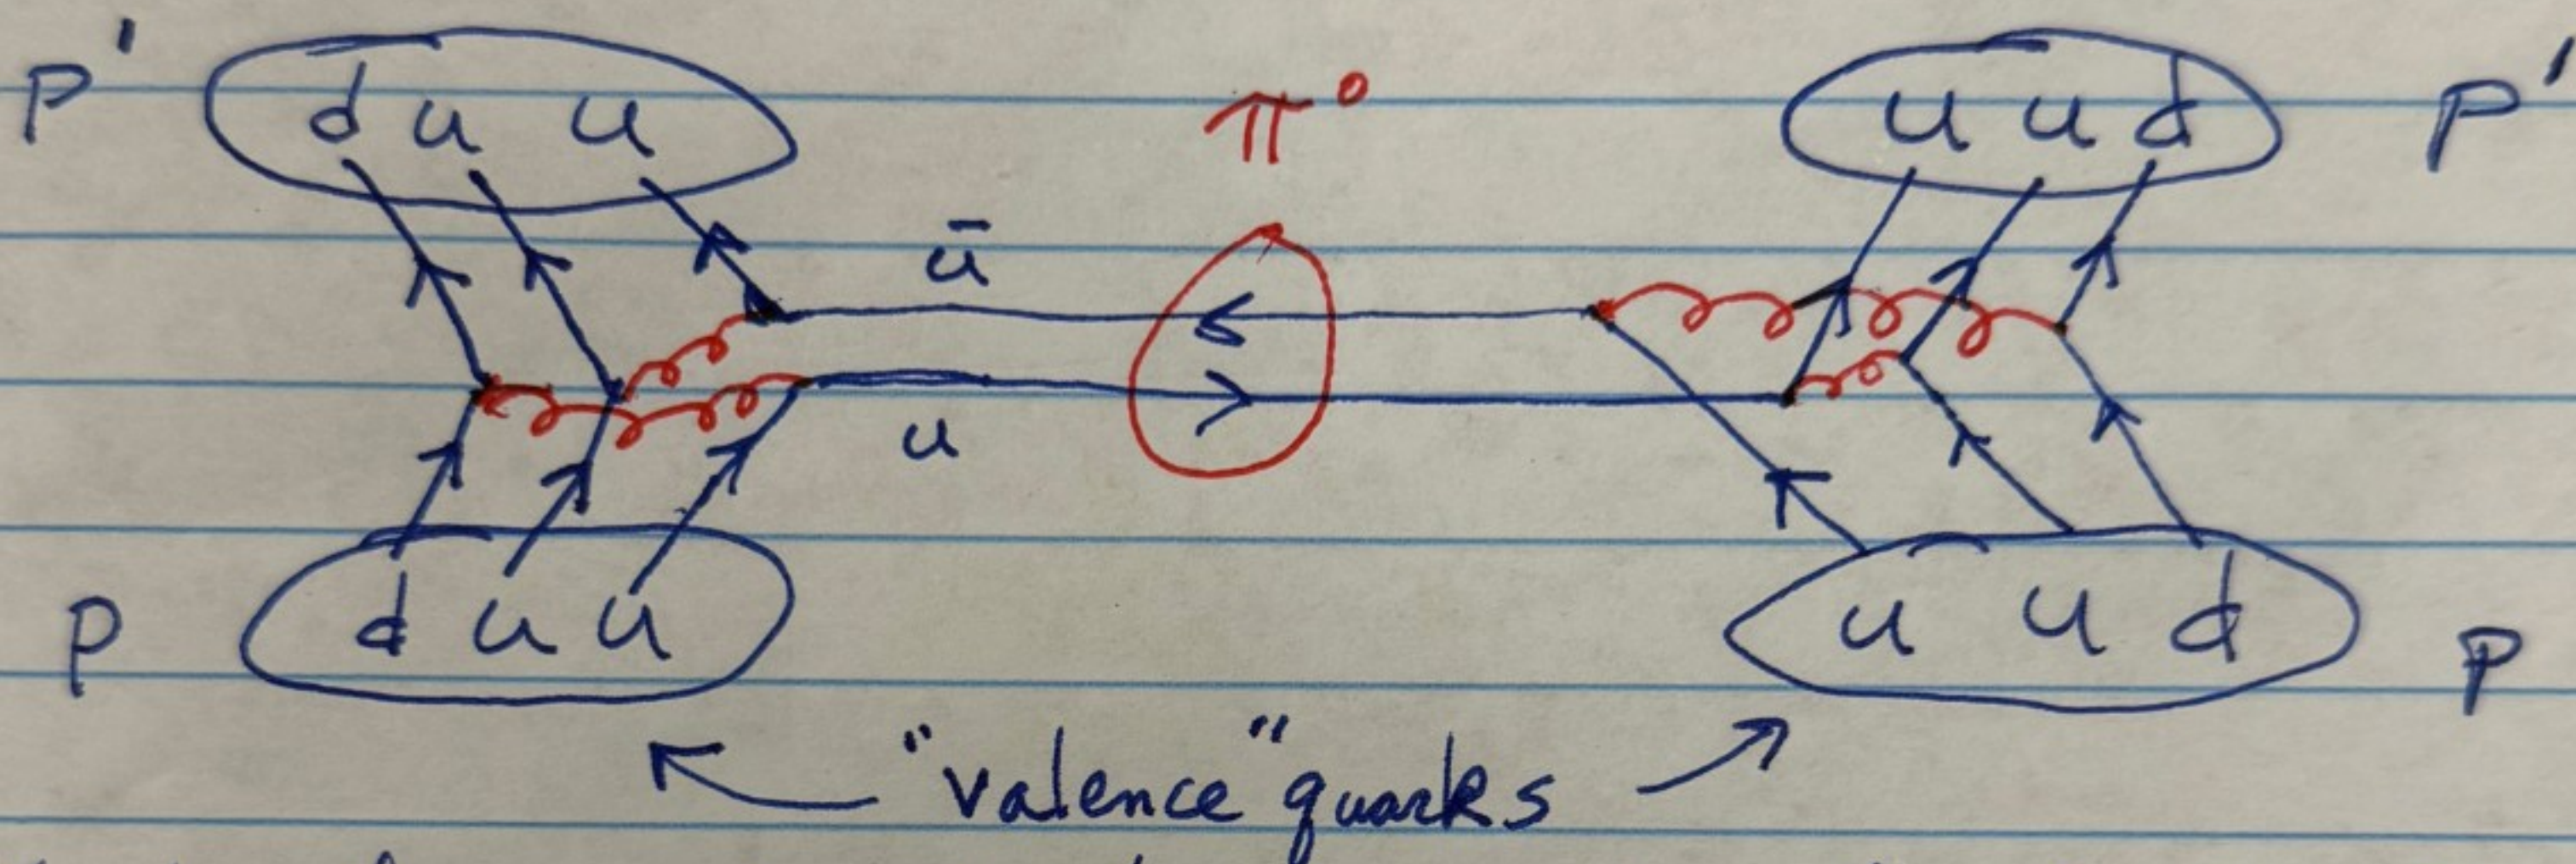 P' d u u π⁰ u u d P'
ū
u
P d u u u u d P
"valence" quarks